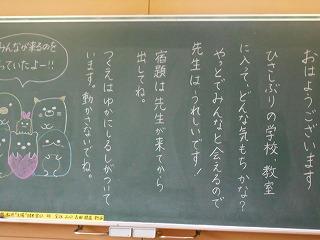 おはようございます！
ひさしぶりの学校、教室
に入って、どんな気もちかな？
やっとでみんなと会えるので
先生は、うれしいです！
宿題は先生が来てから
出してね。
つくえはゆかにしるしがついて
います。動かさないでね。
みんなが来るのを
っていたよー!!